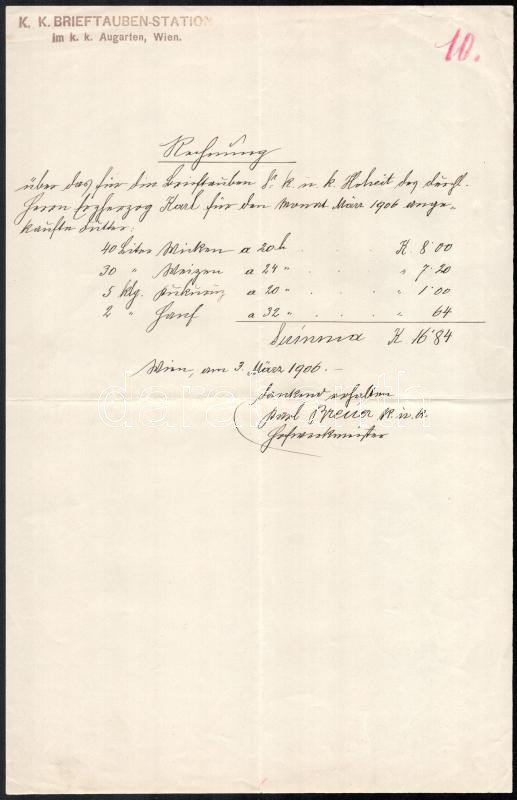 K. K. BRIEFTAUBEN-STATION
im k. k. Augarten, Wien.
10.
Rechnung
über das für die Brieftauben Sr. k. u. k. Hoheit des durchl.
Herrn Erzherzog Karl für den Monat März 1906 ange-
kaufte Futter:
40 Liter Wicken a 20 h . . . K. 8·00
30 " Weizen a 24 " . . . " 7·20
5 klg. Kukuruz a 20 " . . . " 1·00
2 " Hanf a 32 " . . . " 64
Summa K 16·84
Wien, am 3. März 1906.–
dankend erhalten
Karl k. u. k.
Hofwerkmeister